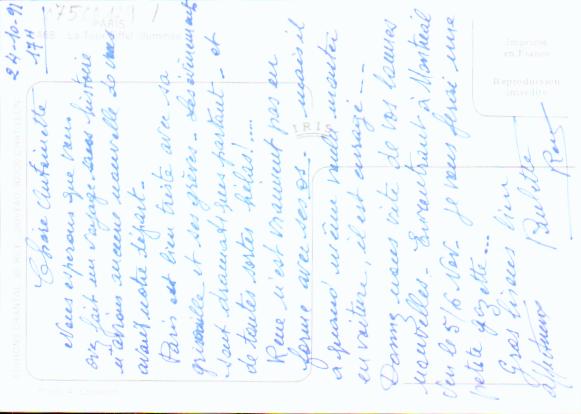 24-10-91
17H
Chère Antoinette
Nous espérons que vous
avez fait un voyage sans histoire
n'avons aucune nouvelle de
avant notre départ-
Paris est bien triste avec sa
grisaille et ses grèves - Les éléments
sont dramatiques partout - et
de toutes sortes hélas!....
René n'est vraiment pas en
forme avec ses os - mais il
a quand même voulu monter
en voiture, il est enragé --
Donnez nous vite de vos bonnes
nouvelles - En rentrant à Montréal
vers le 5/6 Nov - je vous ferai une
petite gazette...
Gros bisous bien
affectueux
PARIS
La Tour Eiffel illuminée
IRIS
Imprimé
en France
Reproduction
interdite